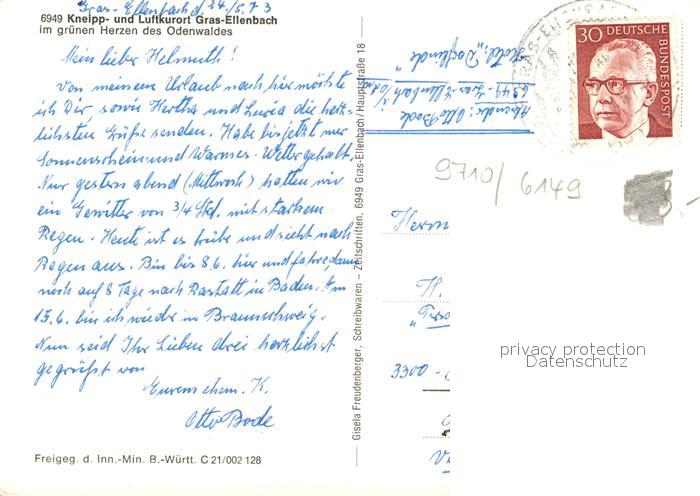 Gras-Ellenbach d. 24./5.73
6949 Kneipp- und Luftkurort Gras-Ellenbach
im grünen Herzen des Odenwaldes
Mein lieber Helmuth!
Von meinem Urlaub nach hier möchte
ich Dir sowie Hertha und Luzia die herz-
lichsten Grüße senden. Habe bis jetzt nur
Sonnenschein und warmes Wetter gehabt.
Nur gestern abend (Mittwoch) hatten wir
ein Gewitter von 3/4 Std. mit starkem
Regen. Heute ist es trübe und sieht nach
Regen aus. Bin bis 8.6. hier und fahre dann
noch auf 8 Tage nach Rastatt in Baden. Am
15.6. bin ich wieder in Braunschweig.
Nun seid Ihr Lieben drei herzlichst
gegrüßt von
Eurem ehem. K.
Otto Bode
Freigeg. d. Inn.-Min. B.-Württ. C 21/002 128
Gisela Freudenberger, Schreibwaren – Zeitschriften, 6949 Gras-Ellenbach/Hauptstraße 18
Absender: Otto Bode
6949 Gras-Ellenbach
Hotel:
30 DEUTSCHE
BUNDESPOST
9710/6149
Herrn
H.
3300 -
privacy protection
Datenschutz